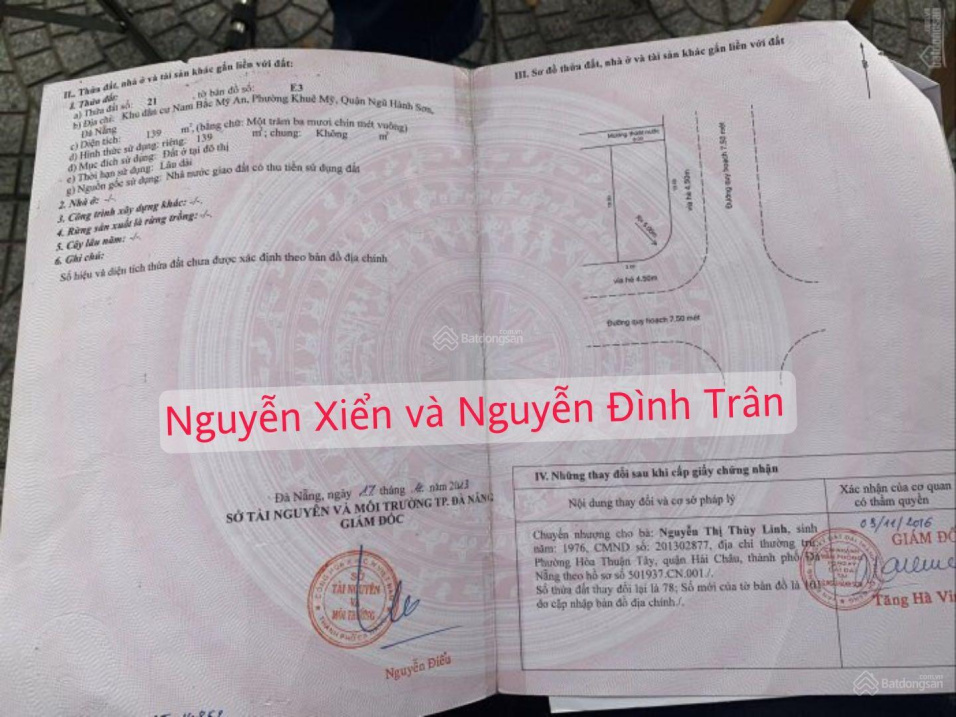 II.. Thửa đất, nhà ở và tài sản khác gắn liền với đất:
1. Thửa đất:
a) Thửa đất số: 21 , tờ bản đồ số: E3
b) Địa chỉ: Khu dân cư Nam Bắc Mỹ An, Phường Khuê Mỹ, Quận Ngũ Hành Sơn,
Đà Nẵng
c) Diện tích: 139 m², (bằng chữ: Một trăm ba mươi chín mét vuông)
d) Hình thức sử dụng: riêng: 139 m²; chung: Không m²
đ) Mục đích sử dụng: Đất ở tại đô thị
e) Thời hạn sử dụng: Lâu dài
g) Nguồn gốc sử dụng: Nhà nước giao đất có thu tiền sử dụng đất
2. Nhà ở: -/-
3. Công trình xây dựng khác: -/-.
4. Rừng sản xuất là rừng trồng: -/-
5. Cây lâu năm: -/-
6. Ghi chú:
Số hiệu và diện tích thửa đất chưa được xác định theo bản đồ địa chính
III. Sơ đồ thửa đất, nhà ở và tài sản khác gắn liền với đất
Mương thoát nước
R= 5.00m
vỉa hè 4.50m
Đường quy hoạch 7.50 mét
5 m
vỉa hè 4.50m
Đường quy hoạch 7.50 mét
Batdongsan.com.vn
Nguyễn Xiển và Nguyễn Đình Trân
Đà Nẵng, ngày 17 tháng năm 2013
SỞ TÀI NGUYÊN VÀ MÔI TRƯỜNG TP. ĐÀ NẴNG
GIÁM ĐỐC
SỞ
TÀI NGUYÊN
VÀ
MÔI TRƯỜNG
Nguyễn Điểu
IV. Những thay đổi sau khi cấp giấy chứng nhận
Nội dung thay đổi và cơ sở pháp lý
Xác nhận của cơ quan
có thẩm quyền
Chuyển nhượng cho bà: Nguyễn Thị Thùy Linh, sinh
năm: 1976, CMND số: 201302877, địa chỉ thường trú:
Phường Hòa Thuận Tây, quận Hải Châu, thành phố Đà
Nẵng theo hồ sơ số 501937.CN.001./.
Số thửa đất thay đổi lại là 78; Số mới của tờ bản đồ là 101
do cập nhập bản đồ địa chính./.
03/11/2016
GIÁM ĐỐ
Tăng Hà Vin
Batdongsan.com.vn